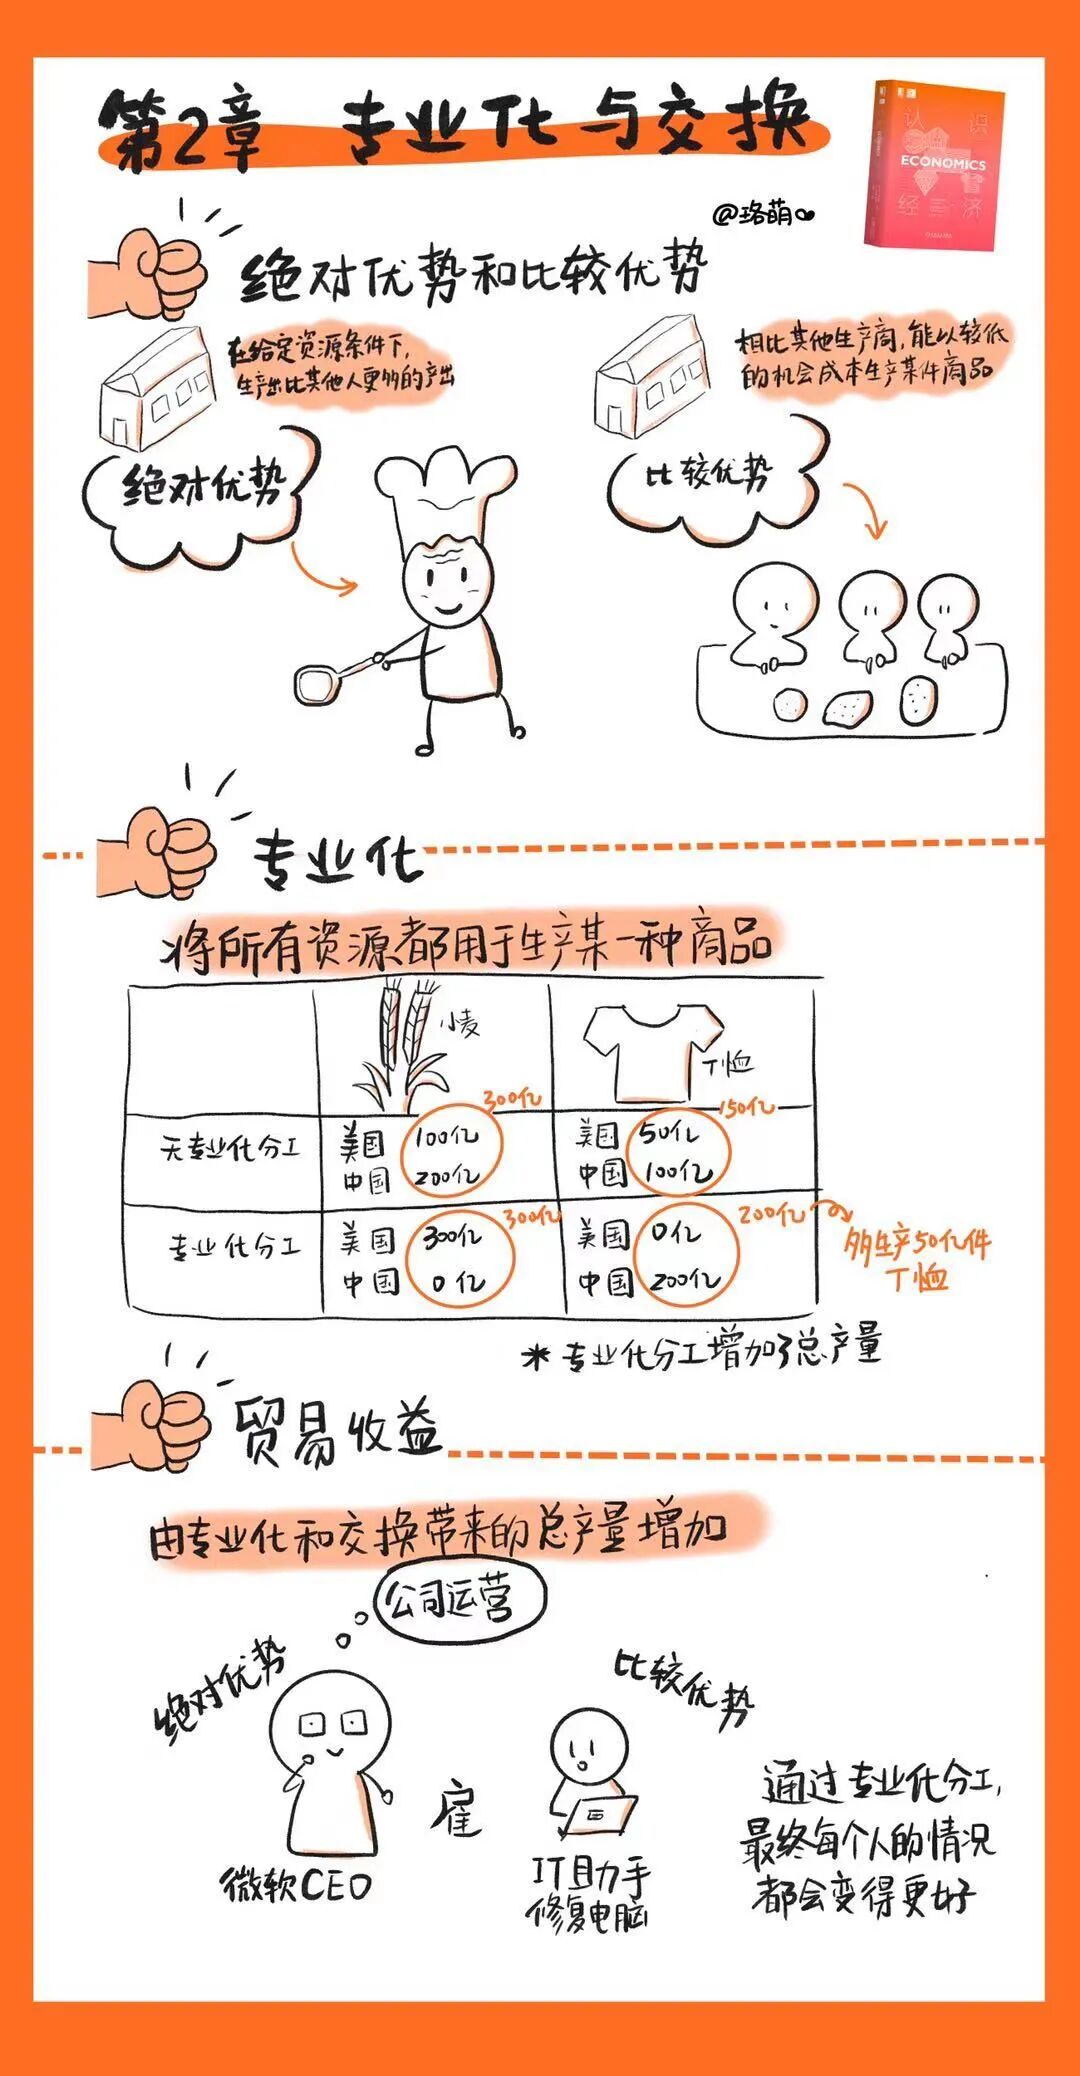 第2章 专业化与交换
认识
ECONOMICS
经济
@珞萌
绝对优势和比较优势
在给定资源条件下,
生产出比其他人更多的产出
相比其他生产商,能以较低
的机会成本生产某件商品
绝对优势
比较优势
专业化
将所有资源都用于生产某一种商品
小麦
T恤
300亿
150亿
无专业化分工
美国 100亿
中国 200亿
美国 50亿
中国 100亿
300亿
200亿
专业化分工
美国 300亿
中国 0亿
美国 0亿
中国 200亿
多生产50亿件
T恤
*专业化分工增加了总产量
贸易收益
由专业化和交换带来的总产量增加
公司运营
绝对优势
比较优势
雇
微软CEO
IT助手
修复电脑
通过专业化分工,
最终每个人的情况
都会变得更好